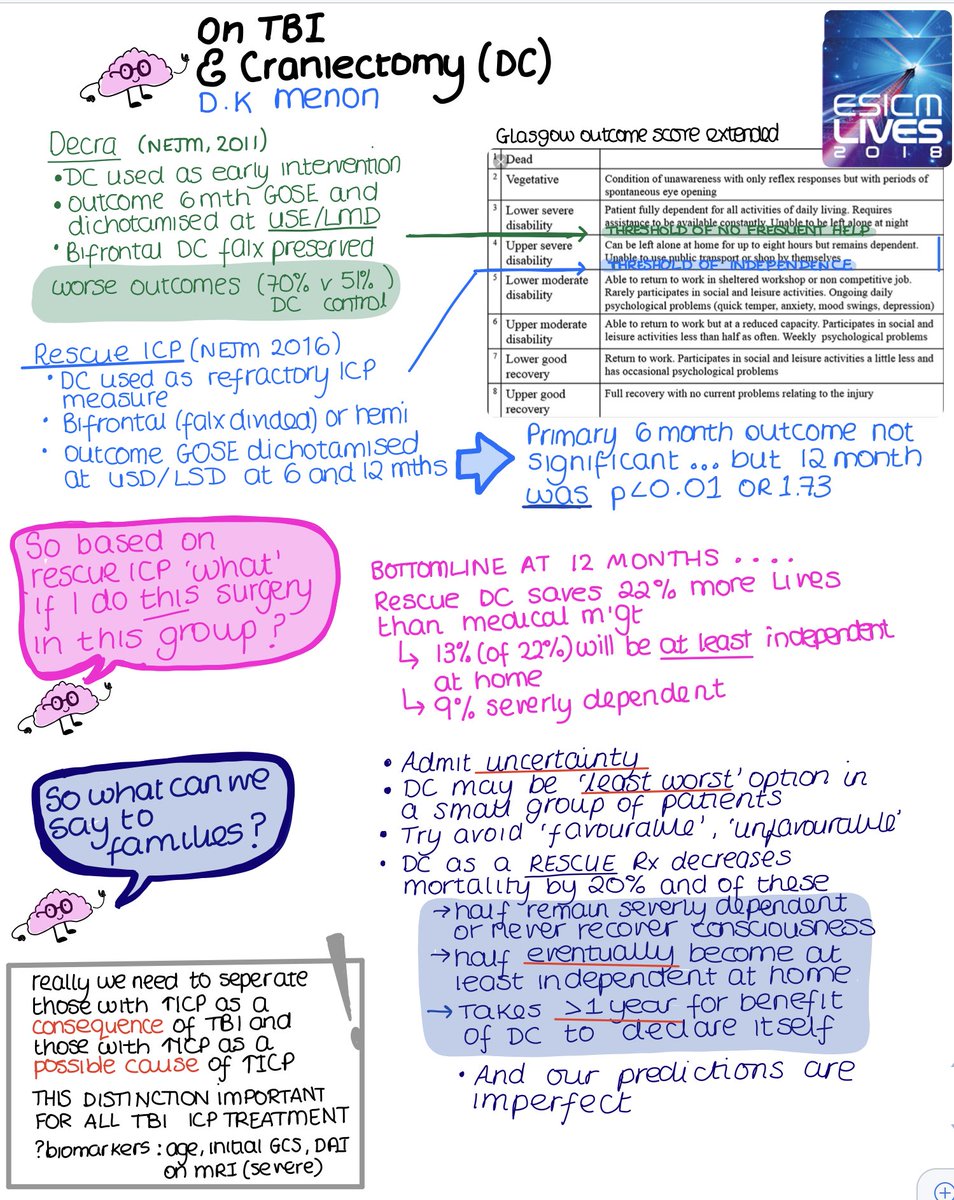 on TBI
& Craniectomy (DC)
D.K menon
ESICM
LIVES
2018
Decra (NEJM, 2011)
• DC used as early intervention
• outcome 6mth GOSE and
dichotamised at USE/LMD
• Bifrontal DC falx preserved
worse outcomes (70% v 51%)
DC control
Glasgow outcome score extended
1 Dead
2 Vegetative
Condition of unawareness with only reflex responses but with periods of
spontaneous eye opening
3 Lower severe
disability
Patient fully dependent for all activities of daily living. Requires
assistance to be available constantly. Unable to be left alone at night
THRESHOLD OF NO FREQUENT HELP
4 Upper severe
disability
Can be left alone at home for up to eight hours but remains dependent.
Unable to use public transport or shop by themselves
THRESHOLD OF INDEPENDENCE
5 Lower moderate
disability
Able to return to work in sheltered workshop or non competitive job.
Rarely participates in social and leisure activities. Ongoing daily
psychological problems (quick temper, anxiety, mood swings, depression)
6 Upper moderate
disability
Able to return to work but at a reduced capacity. Participates in social and
leisure activities less than half as often. Weekly psychological problems
7 Lower good
recovery
Return to work. Participates in social and leisure activities a little less and
has occasional psychological problems
8 Upper good
recovery
Full recovery with no current problems relating to the injury
Rescue ICP (NEJM 2016)
• DC used as refractory ICP
measure
• Bifrontal (falx divided) or hemi
• outcome GOSE dichotamised
at USD/LSD at 6 and 12 mths
Primary 6 month outcome not
significant ... but 12 month
was p<0.01 OR 1.73
So based on
rescue ICP 'what'
if I do this surgery
in this group?
BOTTOMLINE AT 12 MONTHS ....
Rescue DC saves 22% more lives
than medical m'gt
↳ 13% (of 22%) will be at least independent
at home
↳ 9% severly dependent
So what can we
say to
families?
• Admit uncertainty
• DC may be 'least worst' option in
a small group of patients
• Try avoid 'favourable', 'unfavourable'
• DC as a RESCUE Rx decreases
mortality by 20% and of these
→ half remain severly dependent
or never recover consciousness
→ half eventually become at
least independent at home
→ Takes >1 year for benefit
of DC to declare itself
• And our predictions are
imperfect
really we need to seperate
those with ↑ICP as a
consequence of TBI and
those with ↑ICP as a
possible cause of ↑ICP
THIS DISTINCTION IMPORTANT
FOR ALL TBI ICP TREATMENT
?biomarkers : age, initial GCS, DAI
on MRI (severe)
!